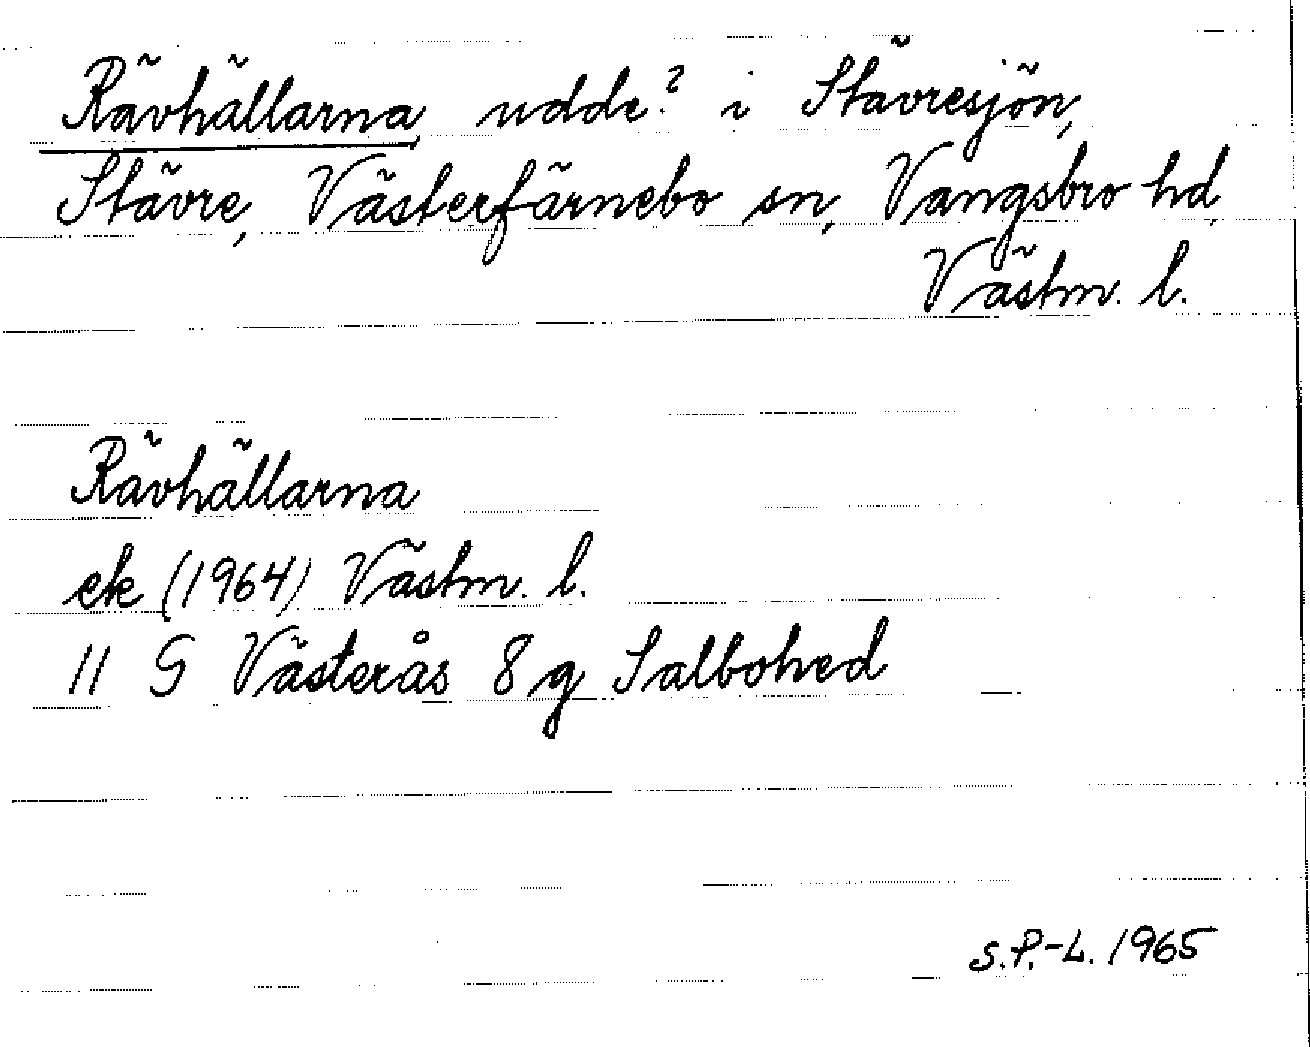 Rävhällarna, udde? i Stävresjön,
Stävre, Västerfärnebo sn, Vangsbro hd,
Västm. l.
Rävhällarna
ek (1964) Västm. l.
11 G Västerås 8 g Salbohed
S.P.-L. 1965